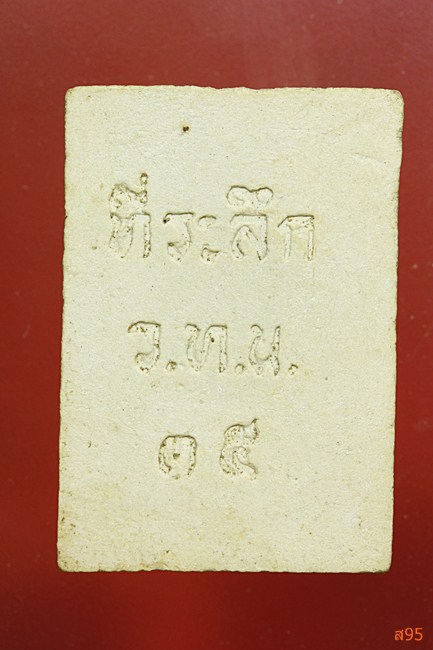 ที่ระลึก
ว.ท.น.
๓๕
ส95